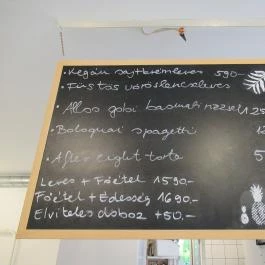 • Vegán sajtkrémleves 590-
• Füstös vöröslencseleves
• Aloo gobi basmati rizzsel 125
• Bolognai spagetti 12
• After eight torta 5
Leves + Főétel 1590.-
Főétel + Édesség 1690.-
Elviteles doboz +50.-